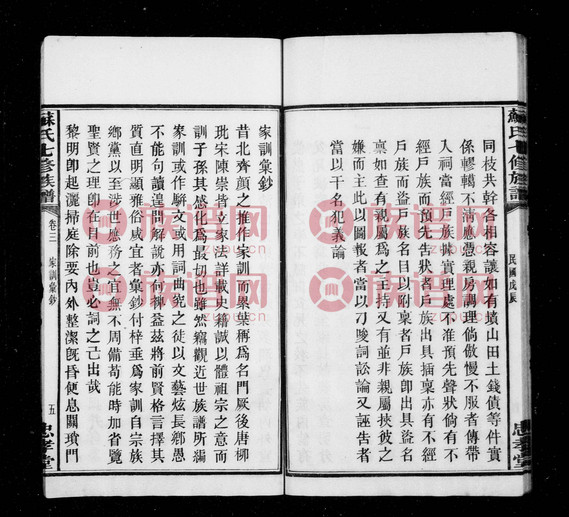 蘇氏七修族譜
民國戊辰
忠孝堂
同枝共幹各相容讓如有墳山田土錢債等件實
係轇轕不清應憑親房調理倘倣慢不服者傳帶
入祠當經戶族據實理處不准預先聲狀倘有不
經戶族而預先告狀者戶族出具插稟亦有不經
戶族而盜戶族名目以附稟者戶族卽出具盜名
稟如查有親屬爲之主持又有並非親屬挾彼之
嫌而主此以圖報者當以刁唆詞訟論又誣告者
當以干名犯義論
家訓彙鈔
昔北齊顏之推作家訓而累葉稱爲名門厥後唐柳
玭宋陳崇皆立家法詳載史籍誠以體祖宗之意而
訓子孫其感化爲最切也雖然竊觀近世族譜所編
家訓或作駢文或用詞曲宄之徒以文藝炫長鄉愚
不能句讀遑問解說亦何裨益茲將前賢格言擇其
質直明顯雅俗咸宜者彙鈔付梓垂爲家訓自宗族
鄉黨以至涉世應務之宜無不周備苟能時加省覽
聖賢之理卽在目前也豈必詞之己出哉
黎明卽起灑掃庭除要內外整潔旣昏便息關瑣門
蘇氏七修族譜
卷三 家訓彙鈔
五
忠孝堂
族譜网
zupu.cn